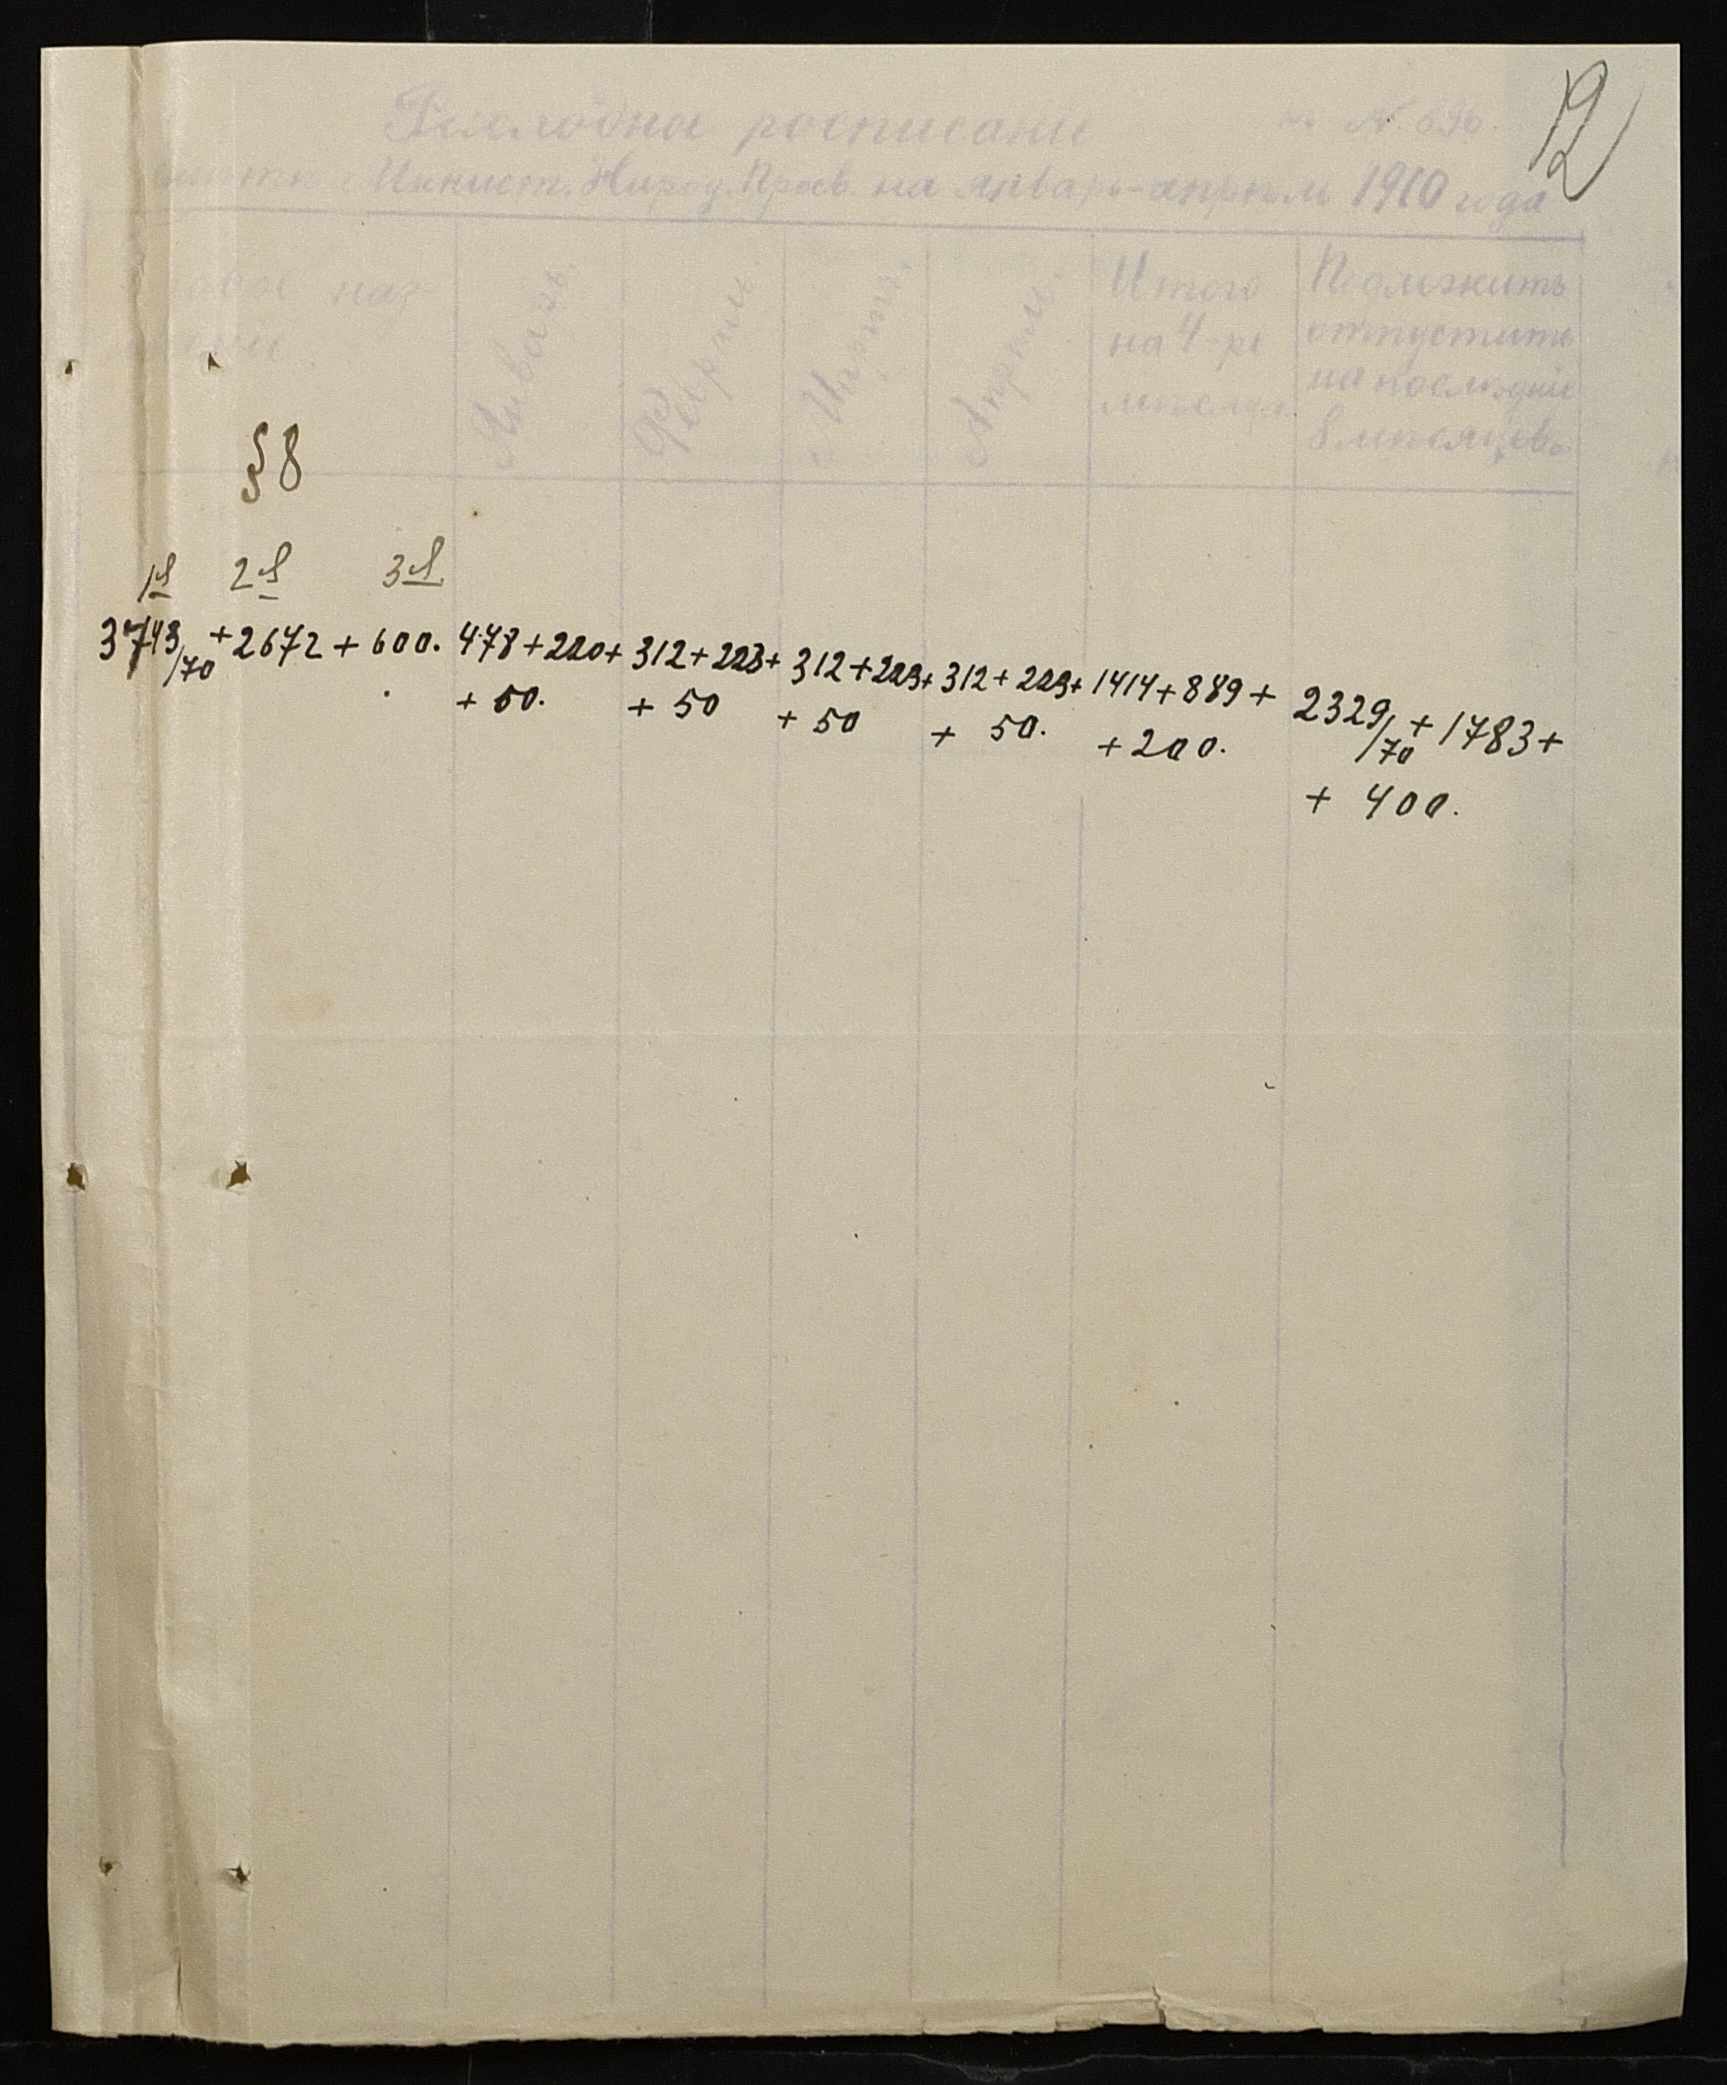 12
росписаніе № 696.
Минист. Народ. Просв. на январь-апрѣль 1910 года
Январь. Февраль. Мартъ. Апрѣль. Итого на 4-ре мѣсяца Подлежитъ отпустить на послѣдніе 8 мѣсяцевъ
§ 8
1 2 3
3743/70 + 2672 + 600. 478 + 220 + 312 + 223 + 312 + 223 + 312 + 223 + 1414 + 889 + 2329/70 + 1783 +
+ 50. + 50 + 50 + 50. + 200. + 400.